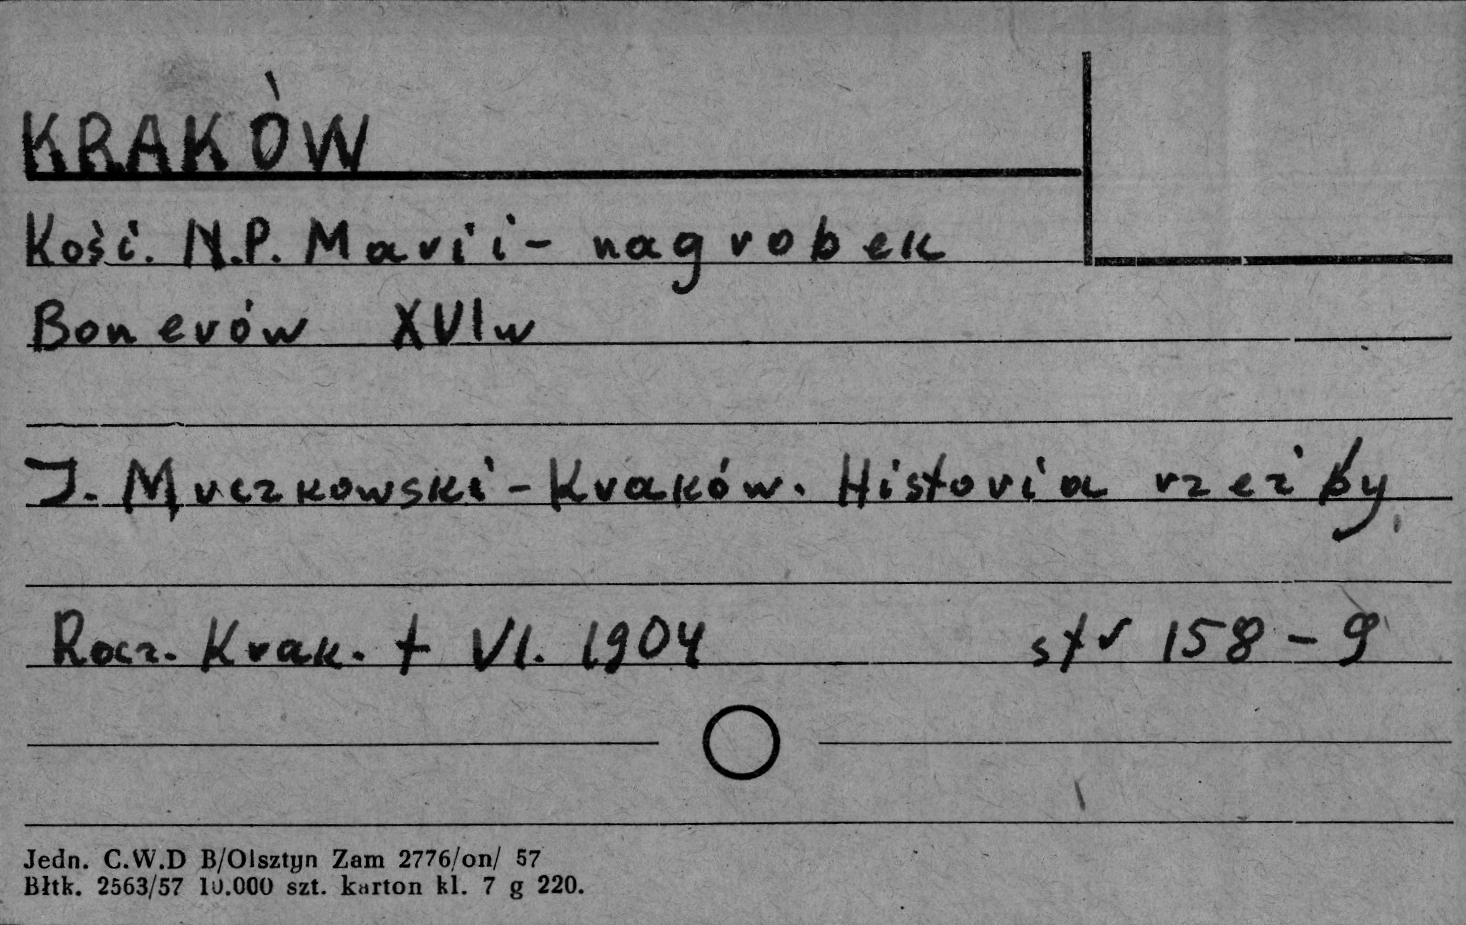 KRAKÓW
Kość. N.P. Marii - nagrobek
Bonerów XVI w
J. Muczkowski - Kraków. Historia rzeźby
Rocz. Krak. t VI. 1904 str 158-9
Jedn. C.W.D B/Olsztyn Zam 2776/on/ 57
Błtk. 2563/57 10.000 szt. karton kl. 7 g 220.